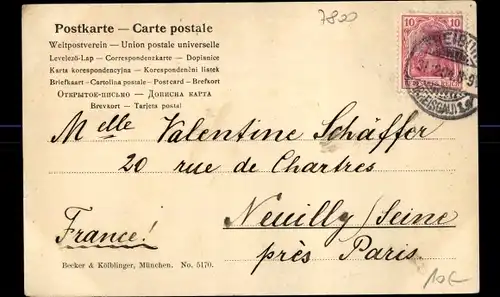 7800
Postkarte — Carte postale
Weltpostverein — Union postale universelle
Levelező-Lap — Correspondenzkarte — Dopisnice
Karta korespondencyjna — Korespondenční lístek
Briefkaart - Cartolina postale - Postcard - Brefkort
ОТКРЫТОЕ-ПИСЬМО — ДОПИСНА КАРТА
Brevkort - Tarjeta postal
10 10
Melle Valentine Schäffer
20 rue de Chartres
Neuilly/Seine
France!
près Paris.
Becker & Kölblinger, München. No. 5170.
10€